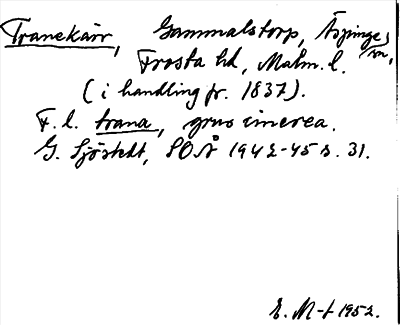 Tranekärr, Gammalstorp, Äspinge sn,
Frosta hd, Malm. l.
(i handling fr. 1837).
F. l. trana, grus cinerea.
G. Sjöstedt, SOÅ 1942-45 s. 31.
E. M-t 1952.